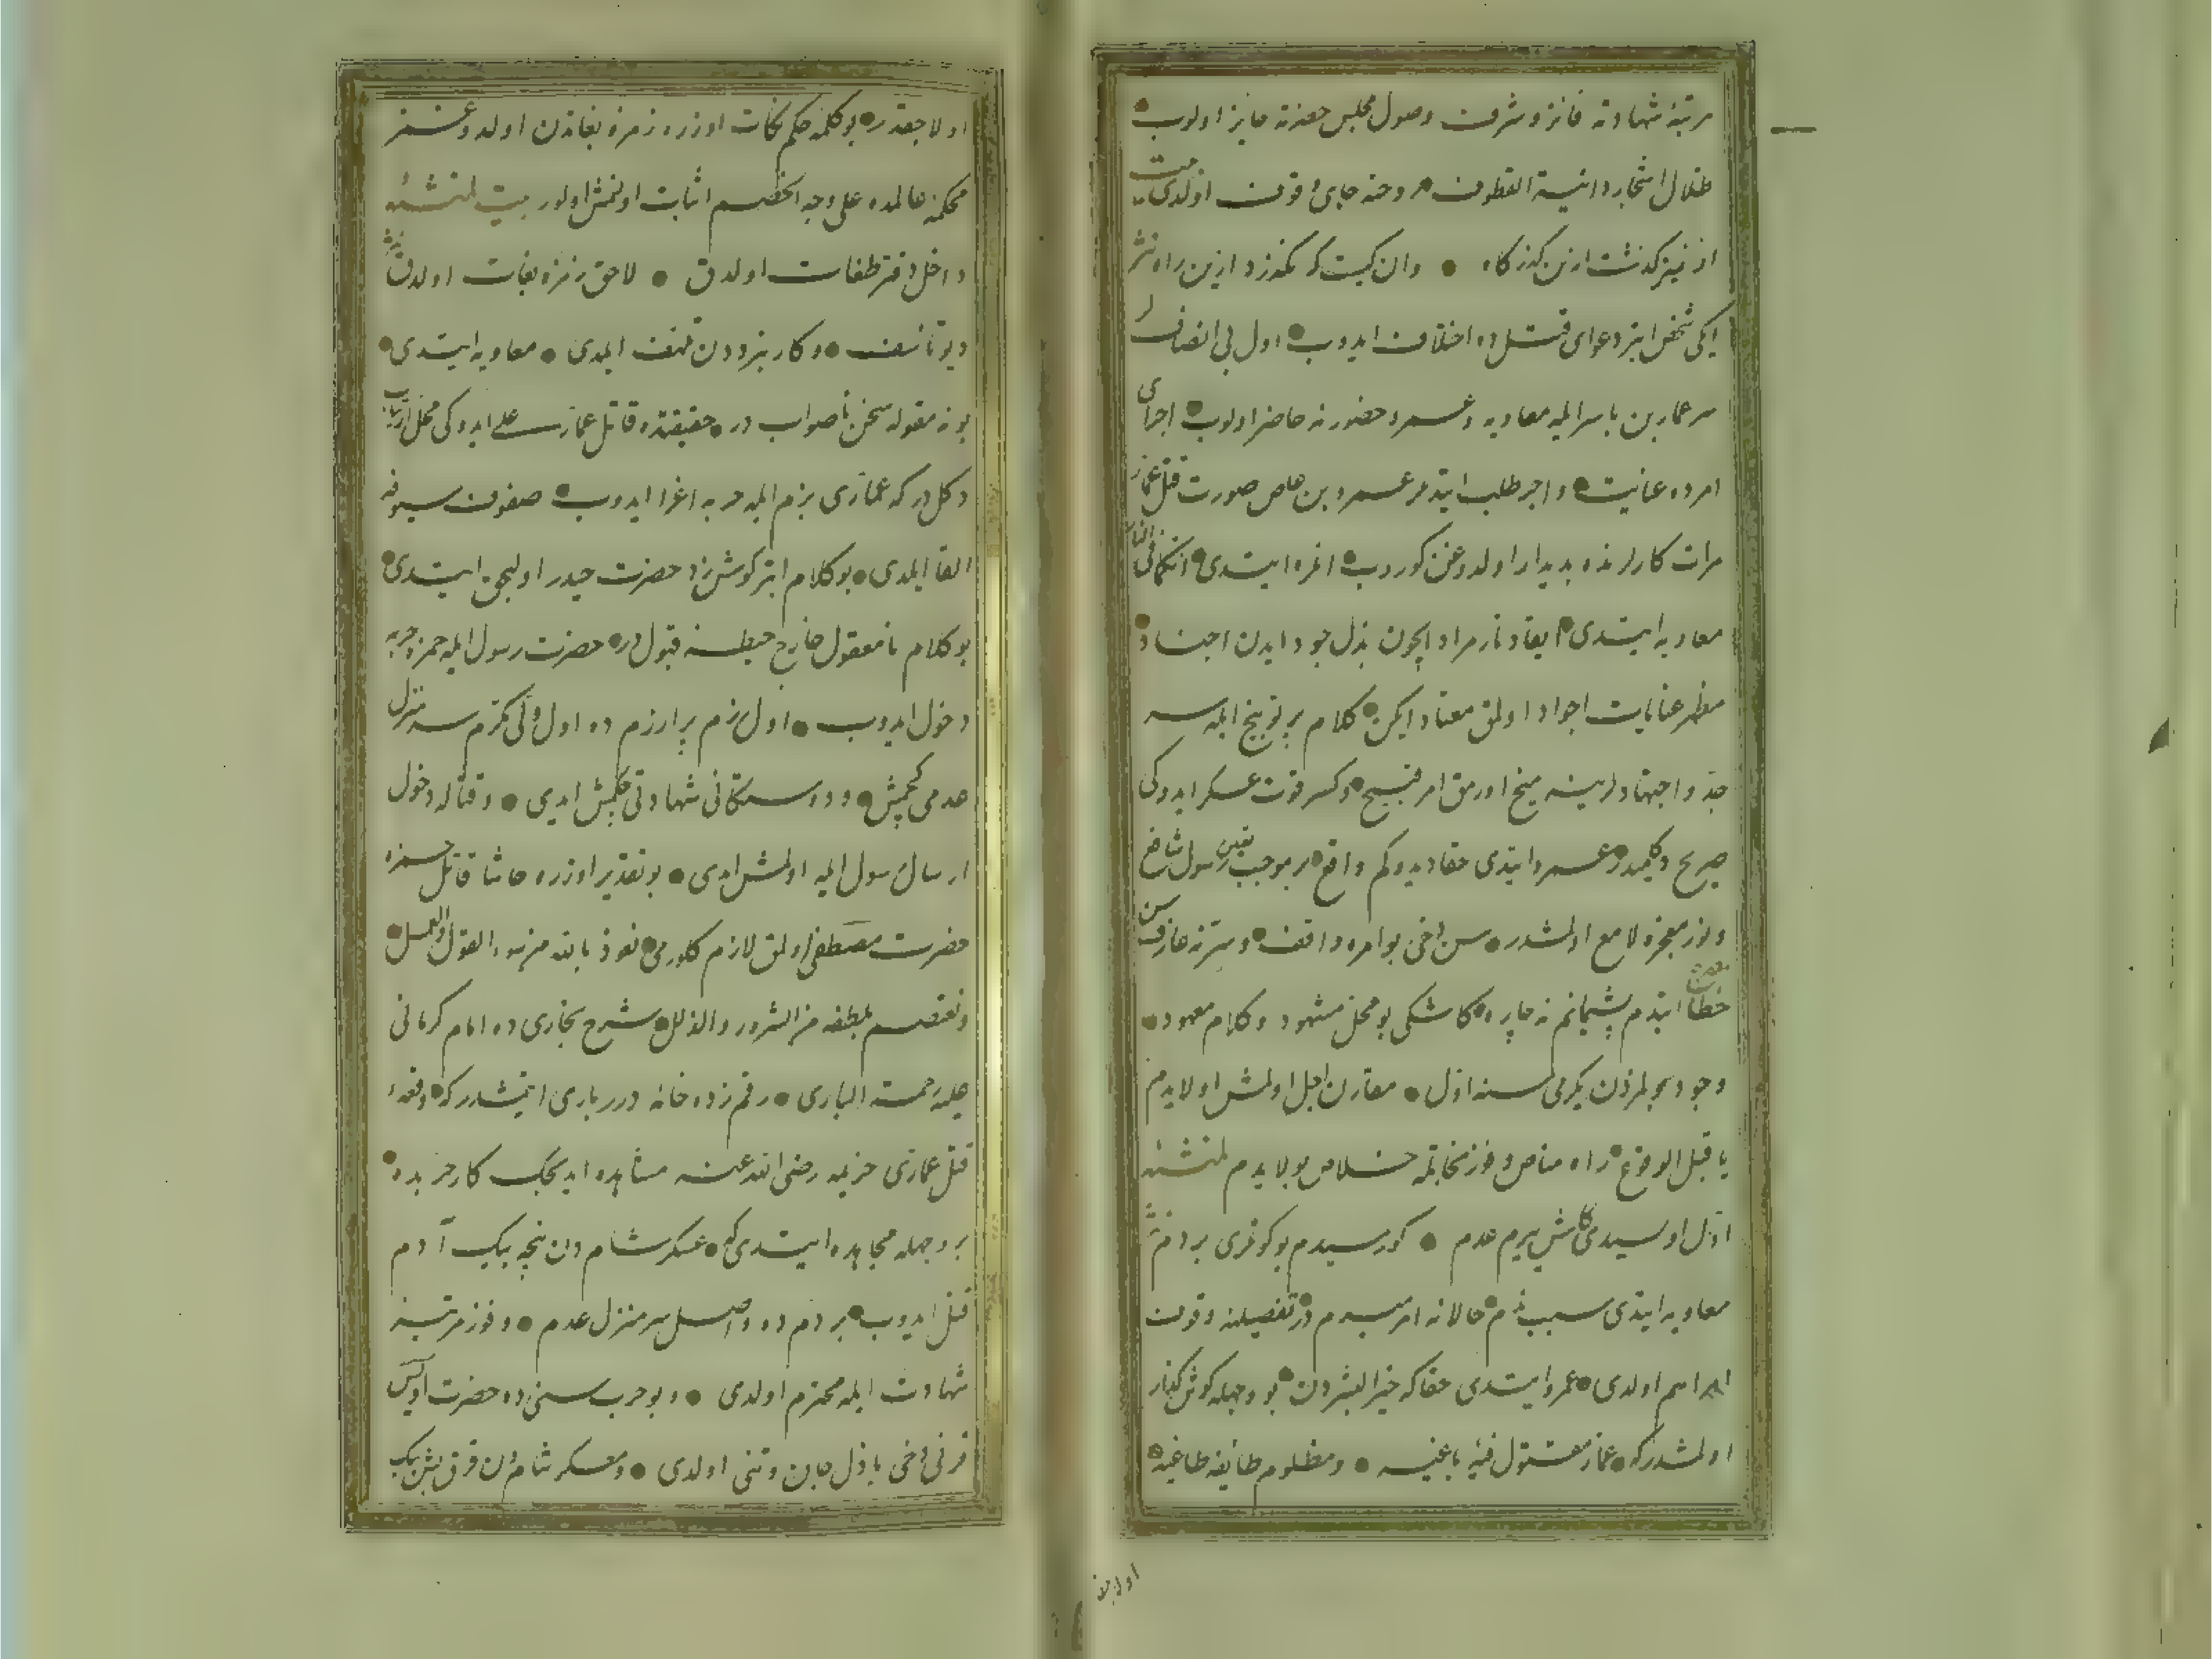 مرتبهٔ شهادته فائز و شرف وصول مجلس حضرته حایز اولوب
ظلال اشجار دانیة القطوف روضه جای وقوف اولدی بیت
او نیز گذشت ازین گذرگاه وان کیست که نگذرد ازین راه نثر
ایکی شخص ابتر دعوای قتلده اختلاف ایدوب اول بی انصافلر
سر عمار بن یاسر ایله معاویه و عمرو حضورنه حاضر اولوب اجرای
امرده عنایت و اجر طلب ایتدیلر عمرو بن عاص صورت قتل عمار
مرات کارلرنده بدیدار اولدوغن کوروب ایتدی انکما فی النار
معاویه ایتدی ایقاد نار مراد ایچون بذل جود ایدن اجناد
مظهر عنایات اجواد اولمق معتاد ایکن کلام پر توبیخ ایله سد
جد و اجتهادلرینه میخ اورمق امر قبیح و کسر قوت عسکر ایدوکی
صریح دکلمیدر عمرو ایتدی حقا دیدوکم واقع بر موجب رسول شافع
و نور معجزه لامع اولمشدر سن دخی بو امره واقف و سرنه عارفسن
خطا ایتدم پشیمانم نه چاره کاشکی بو محل مشهود و کلام معهود
وجود بولمزدن یکرمی سنه اول مقارن اجل اولمش اولایدم
یا قبل الوقوع راه مناص و فوز نجاتله خلاص بولایدم لمنشئه
اول اولسیدی کاش یرم عدم کورمسیدم بو کونلری بر دم
معاویه ایتدی سبب ندم حالا نه امر مبهمدر تفصیلنه وقوف
اهم اولدی عمرو ایتدی حقا که خیر البشردن بو وجهله کوش گذار
اولمشدر که عمار مقتول فئهٔ باغیه و مظلوم طائفه طاغیه
اولاجقدر
اولاجقدر بو کلمه حکم نکات اوزره زمرهٔ بغاتدن اولدوغمز
محکمهٔ عالمده علی وجه الخصم اثبات اولنمش اولور بیت لمنشئه
داخل دفتر طغات اولدق لاحق زمرهٔ بغات اولدق
دیو تاسف و کار بزودن تلهف ایلدی معاویه ایتدی
بو نه مقوله سخن ناصواب در حقیقتده قاتل عمار علی ایدوکی محل ارتیاب
دکلدر که عماری بزم ایله حربه اغرا ایدوب صفوف سیوفه
القا ایلدی بو کلام ابتر کوش زد حضرت حیدر اولیجق ایتدی
بو کلام نامعقول خارج حیطهٔ قبولدر حضرت رسول ایله حمزه حربه
دخول ایدوب اول رزم پر ارزم ده اول ولی مکرم سر منزل
عدمی کچمش و دوستکانی شهادتی چکمش ایدی و قتاله دخول
ارسال رسول ایله اولمش ایدی بو تقدیر اوزره حاشا قاتل حمزه
حضرت مصطفی اولمق لازم کلورمی نعوذ بالله من سوء القول والعمل
و نعتصم بلطفه من الشرور والذلل شرح بخاری ده امام کرمانی
علیه رحمة الباری رقم زده خامه درر باری ایتمشدر که وقعهٔ
قتل عماری خزیمه رضی الله عنه مشاهده ایدیجک کارحربده
بر وجهله مجاهده ایتدی که عسکر شام دن نیچه بیک آدم
قتل ایدوب بر دم ده واصل سر منزل عدم و فوز مرتبهٔ
شهادت ایله محترم اولدی و بو حرب سنی ده حضرت اویس
قرنی دخی باذل جان و تنی اولدی و عسکر شام دن قرق بش بیک